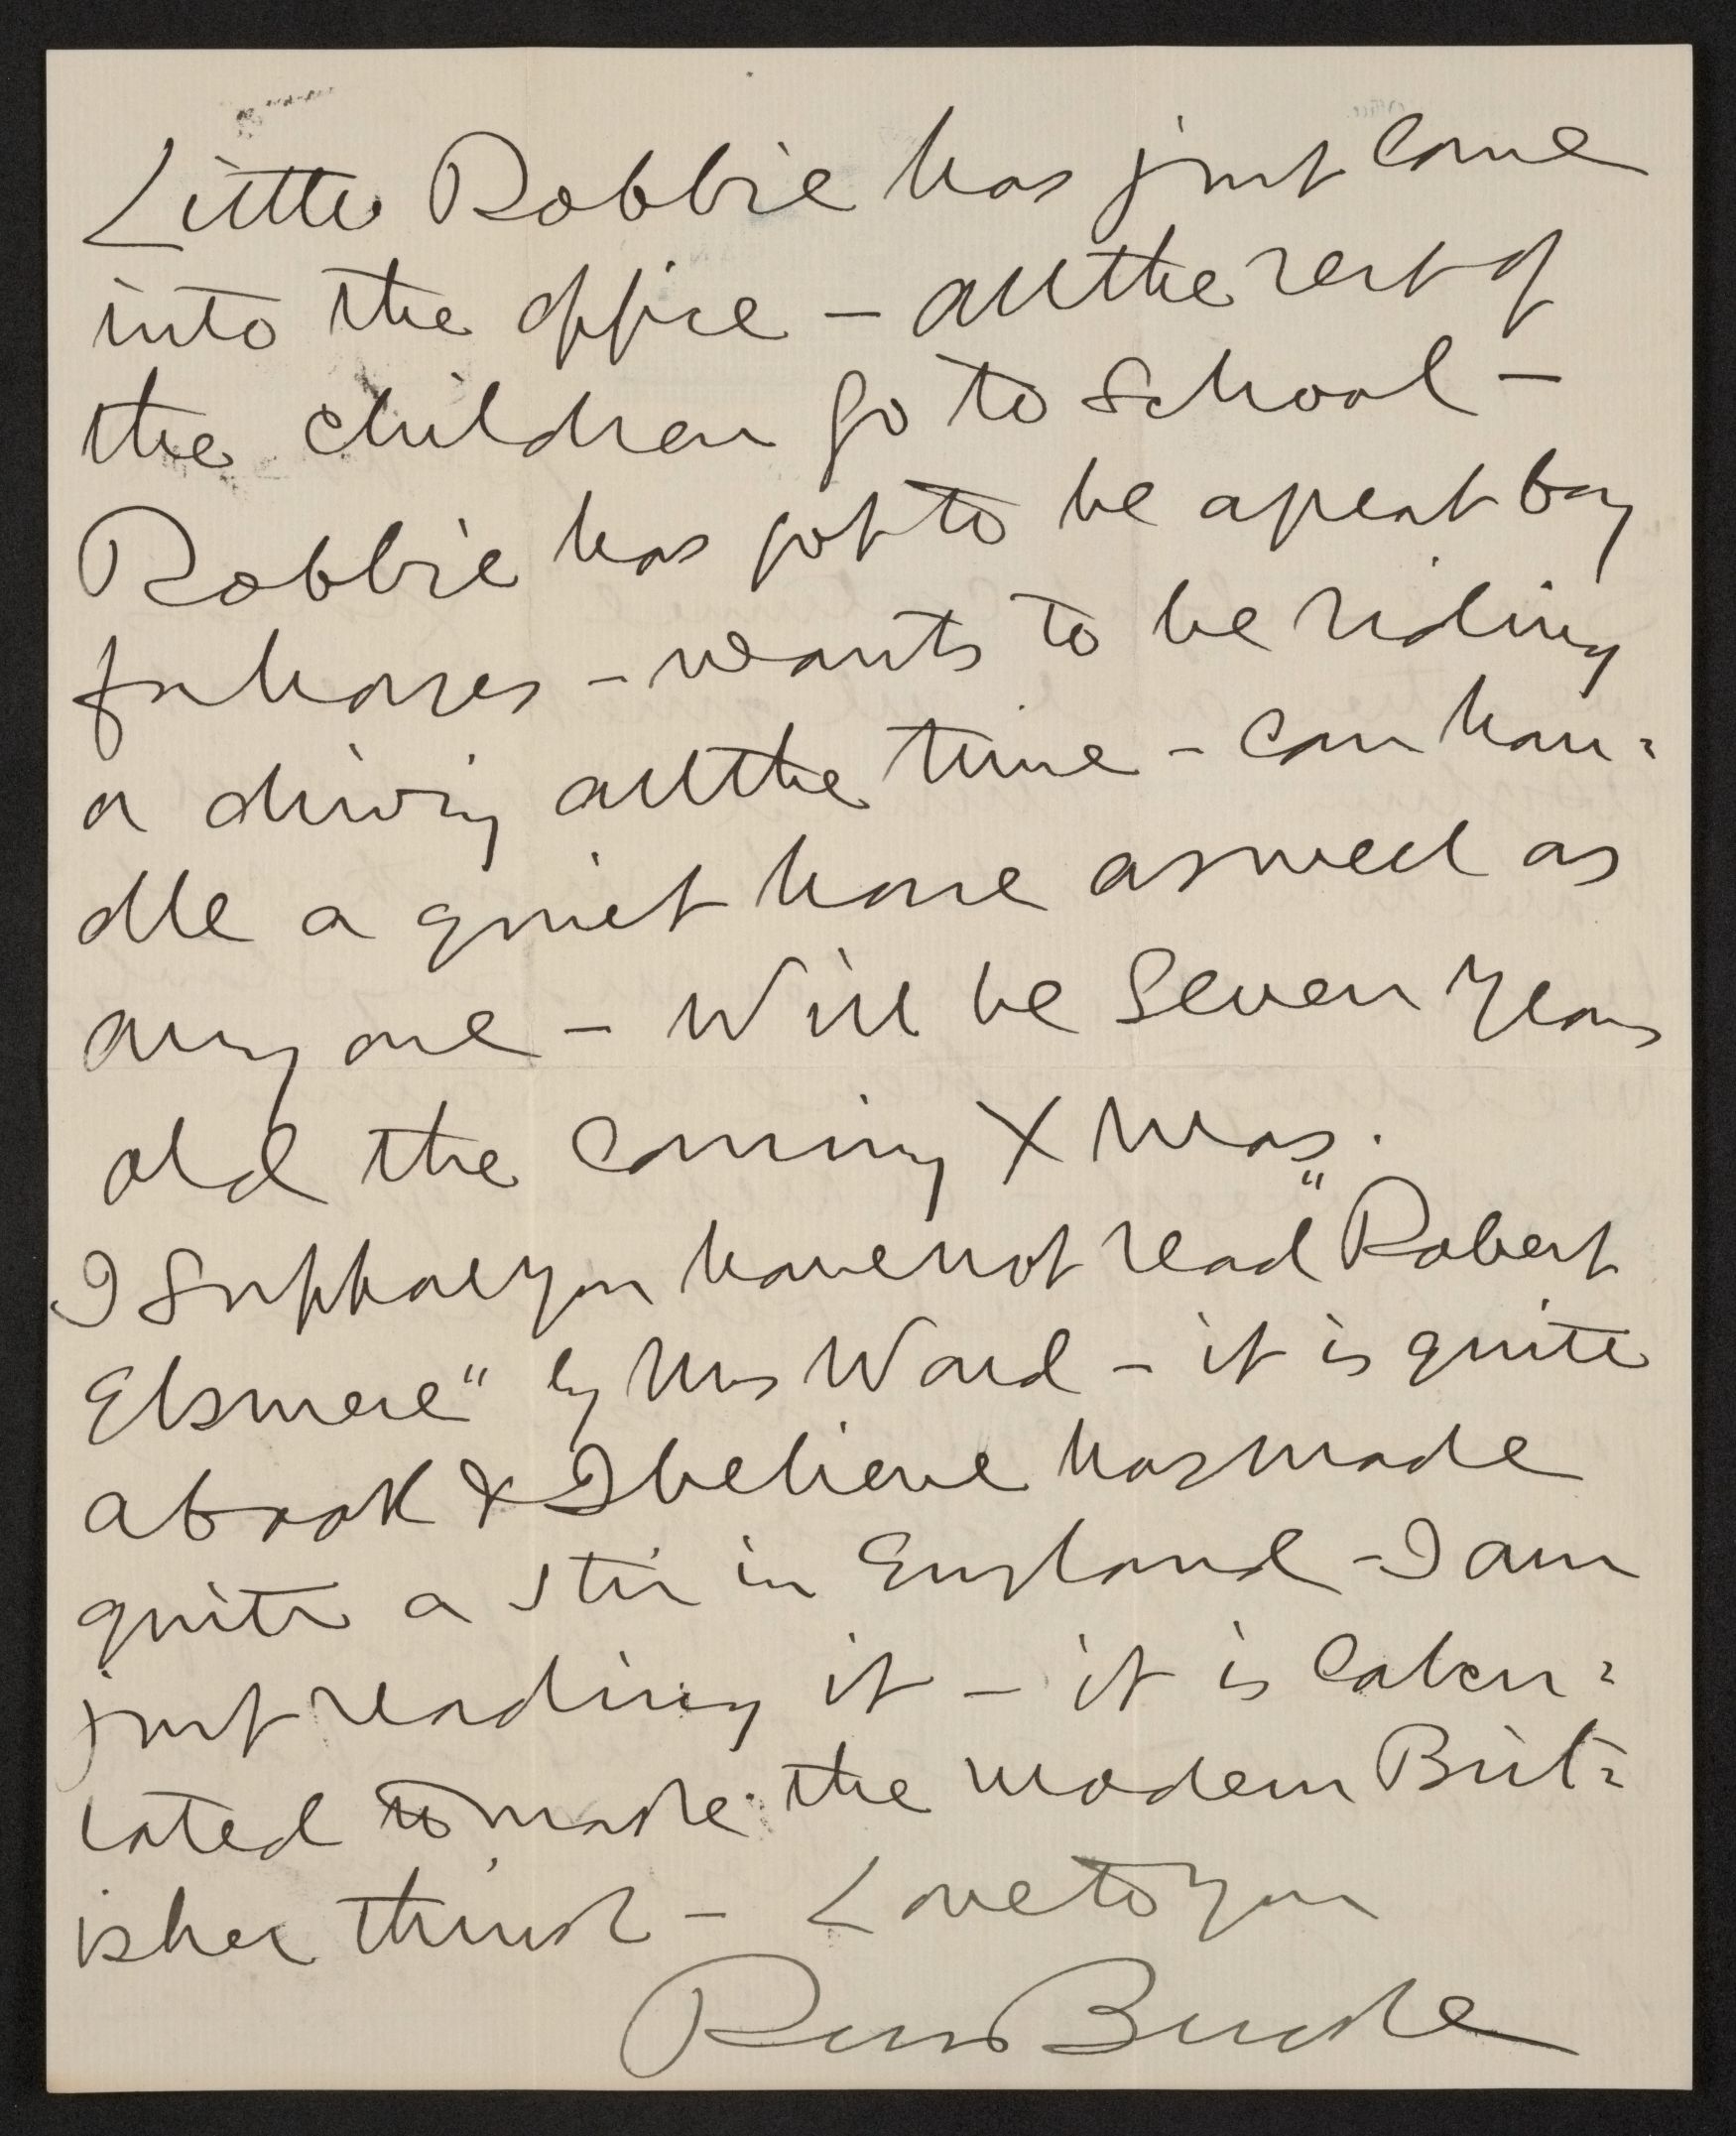 Little Robbie has just come
into the office – all the rest of
the children go to school –
Robbie has got to be a great boy
for horses – wants to be riding
or driving all the time – can han=
dle a quiet horse as well as
any one – Will be Seven Years
old the coming X mas.
I suppose you have not read "Robert
Elsmere" by Mrs Ward – it is quite
a book & I believe has made
quite a stir in England – I am
just reading it – it is calcu=
lated to make the modern Brit=
isher think – Love to you